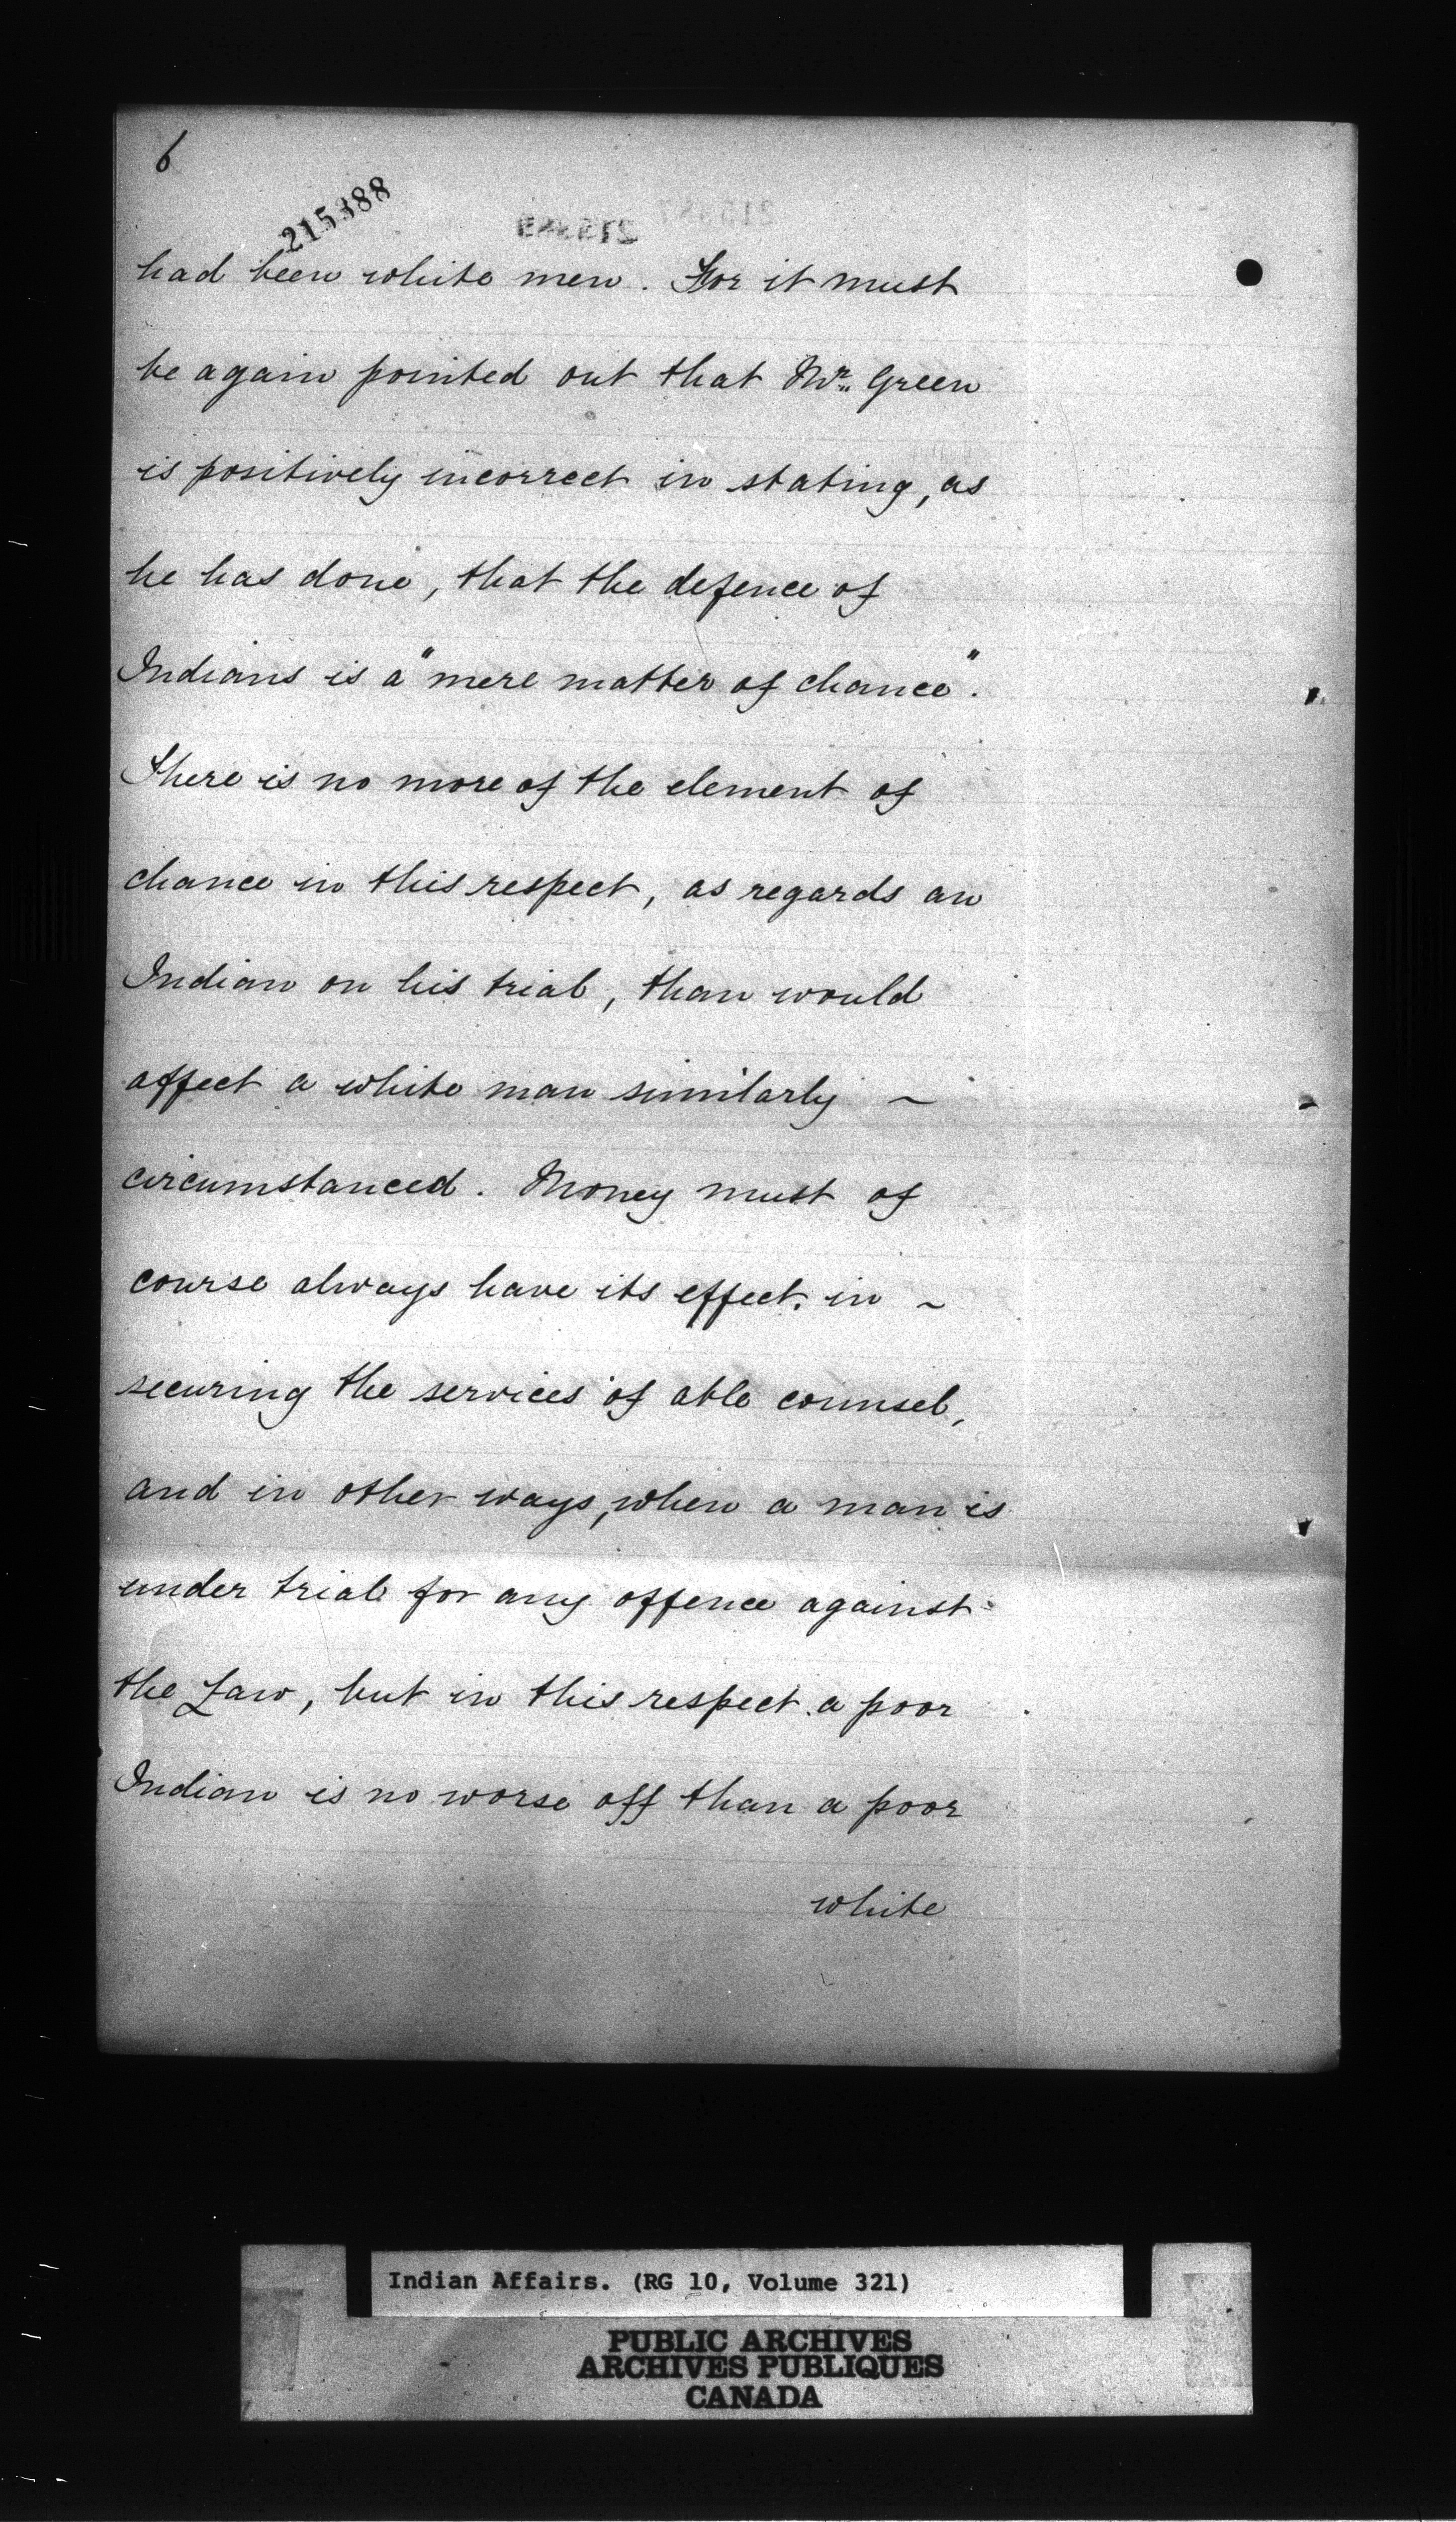 6
215388
had been white men. For it must
be again pointed out that Mr. Green
is positively incorrect in stating, as
he has done, that the defence of
Indians is a "mere matter of chance".
There is no more of the element of
chance in this respect, as regards an
Indian on his trial, than would
affect a white man similarly ~
circumstanced. Money must of
course always have its effect in ~
securing the services of able counsel,
and in other ways, when a man is
under trial for any offence against
the Law, but in this respect a poor
Indian is no worse off than a poor
white
Indian Affairs. (RG 10, Volume 321)
PUBLIC ARCHIVES
ARCHIVES PUBLIQUES
CANADA